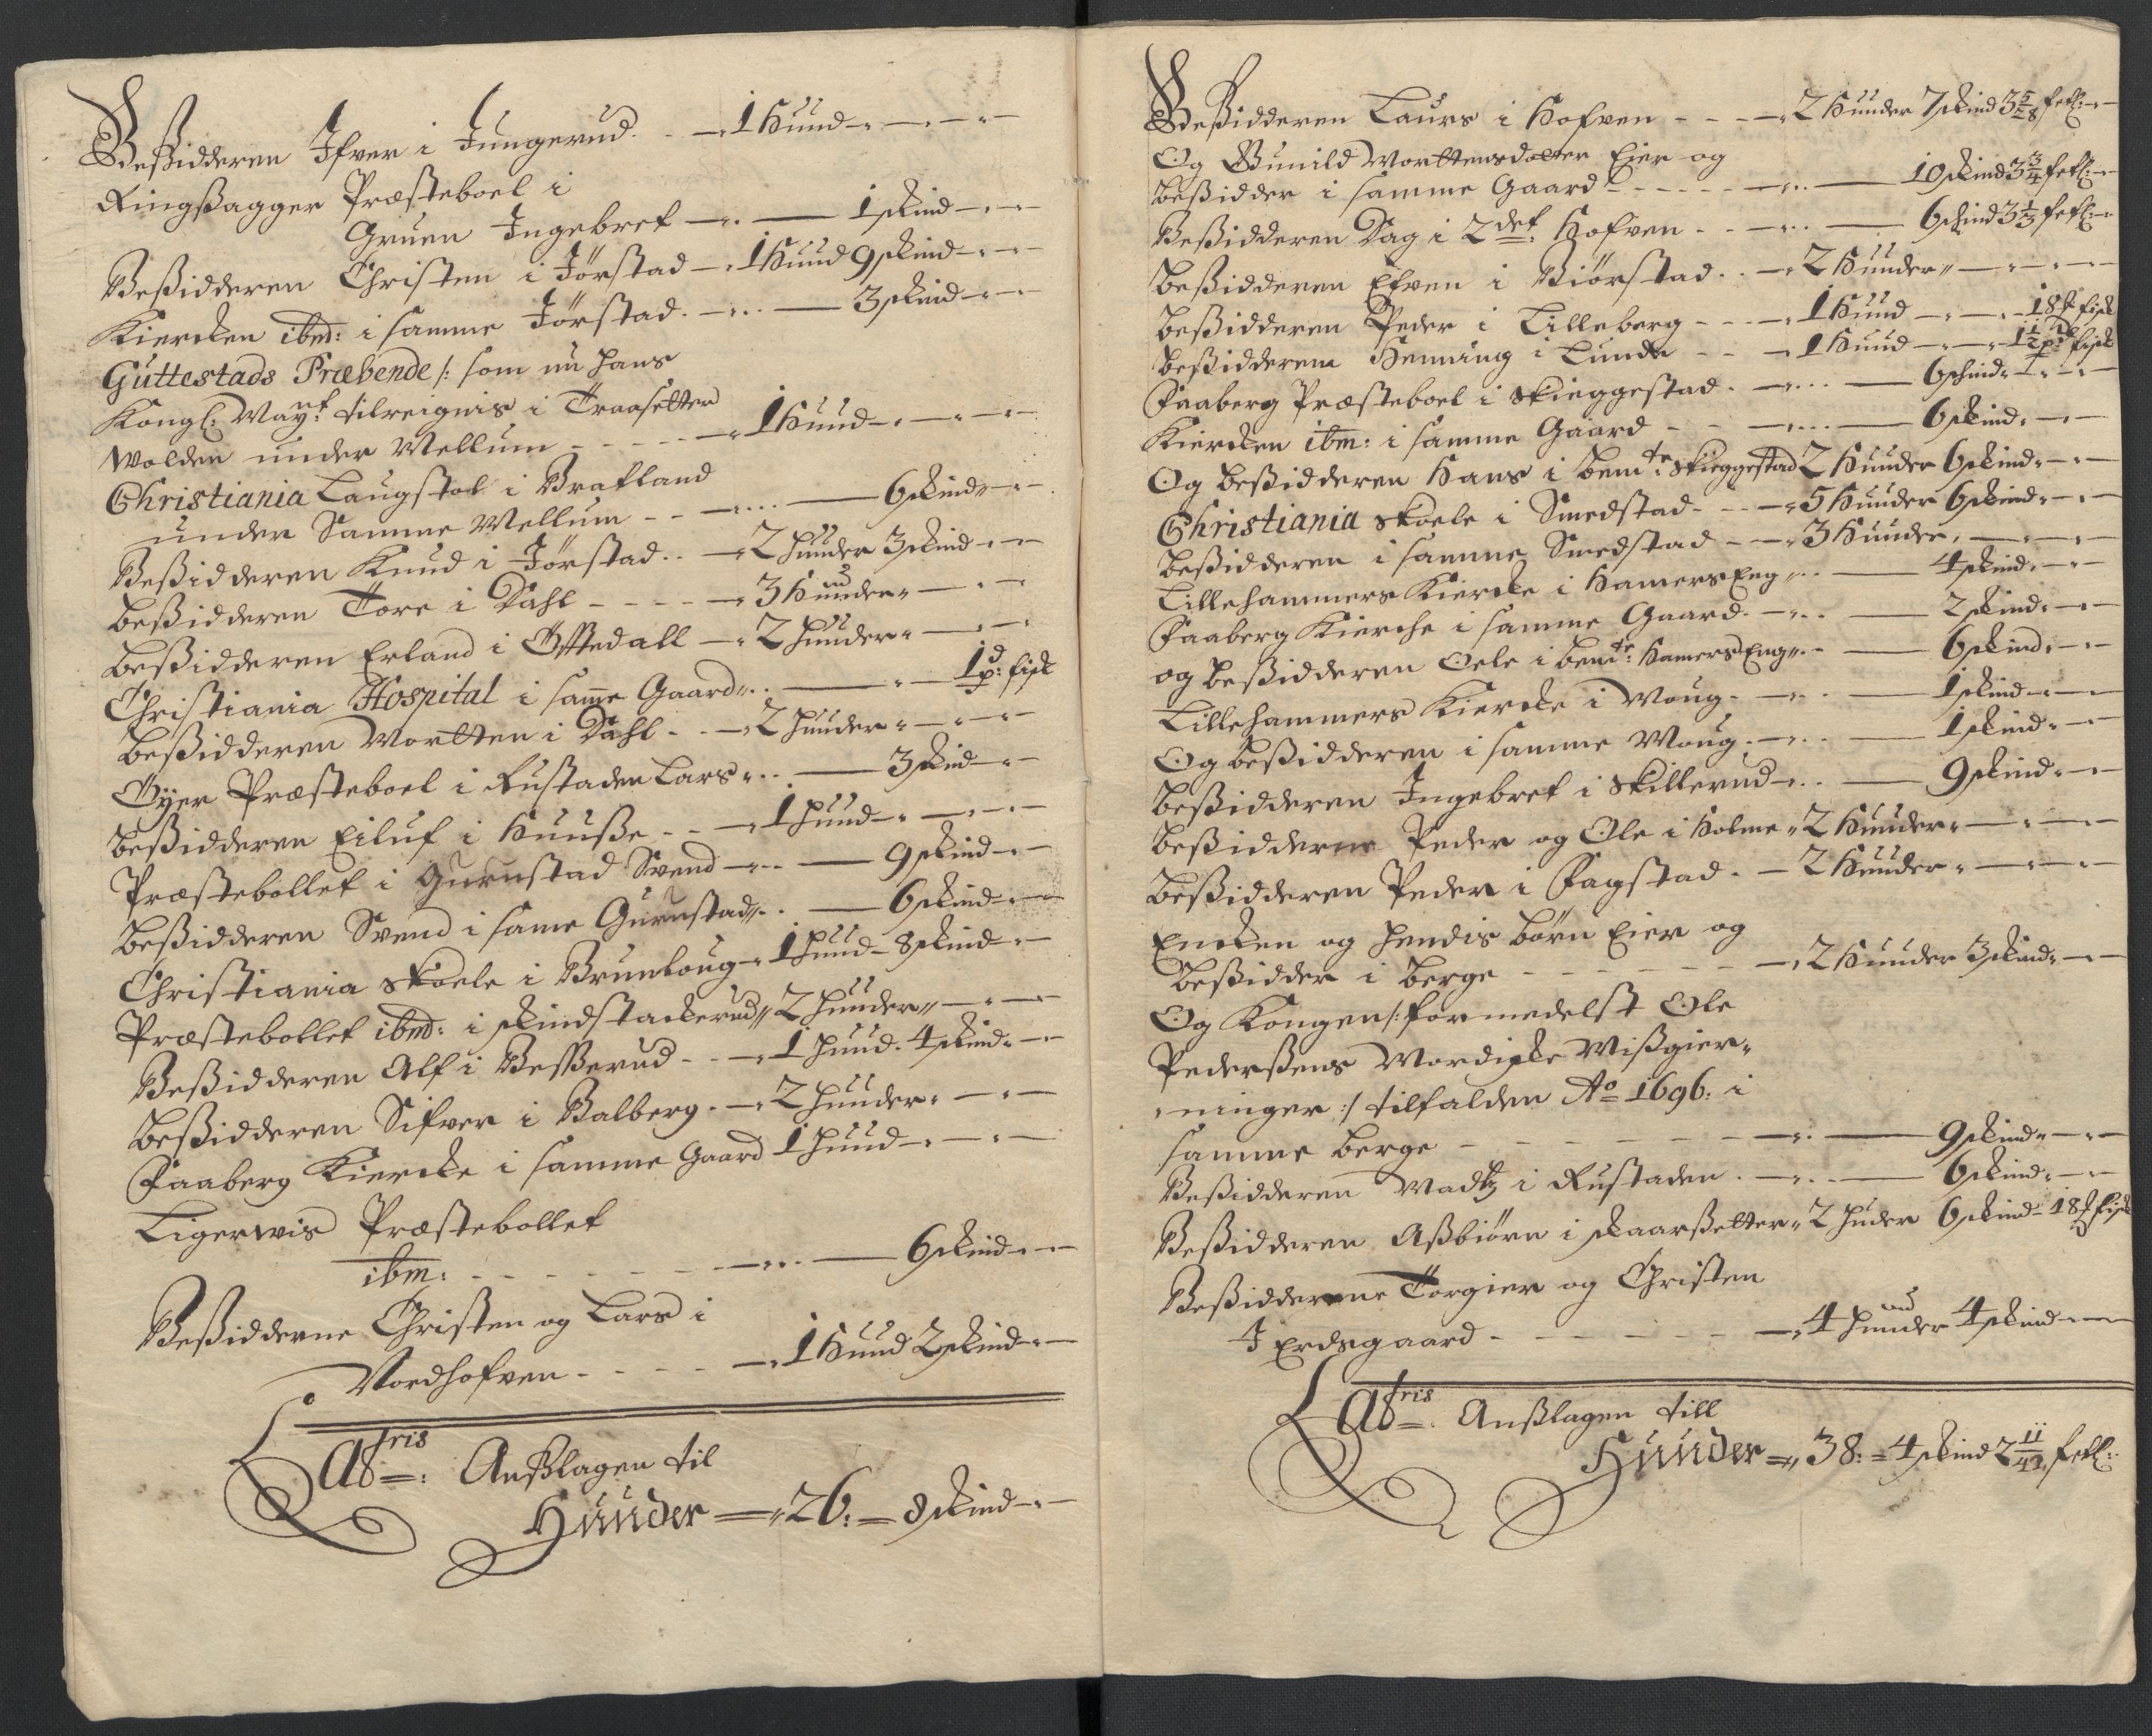 Beßidderen Ifver i Jungerud - - 1 Hund
Ringßagger Præsteboel i
Gruen Ingebret - - 1 skind
Beßidderen Christen i Jörstad - 1 Hund 9 skind
Kiercken ibm: i samme Jörstad - - 3 skind
Guttestads Præbende /: som nu hans
Kongl: Mayt: tilreignis i Traasetter
Wolden under Mellum - - 1 Hund
Christiania Laugstol i Bratland
under Samme Mellum - - 6 skind
Beßidderen Knud i Jörstad - 2 Hunder 3 skind
beßidderen Tore i Dahl - - 3 Hunder
beßidderen Erland i Öffredall - 2 hunder
Christiania Hospital i same Gaard - - 1 pd: fisk
beßidderen Mortten i Dahl - - 2 hunder
Öyer Præsteboel i Rustaden Lars - 3 skind
beßidderen Eiluf i Huuße - - 1 hund
Præstebollet i Gurustad Svend - - 9 skind
beßidderen Svend i same Gurustad - 6 skind
Christiania skoele i Brunloug - 1 hund - 8 skind
Præstebollet ibmd: i skindstackerud 2 hunder
Beßidderen Alf i Beßerud - - 1 hund 4 skind
beßidderen Sifver i Balberg - 2 hunder
Faaberg Kiercke i samme Gaard 1 hund
Ligerwis Præstebollet
ibm: - - 6 skind
Beßidderne Christen og Lars i
Nordhofven - - 1 Hund 2 skind
Ltris Anßlagen til
Hunder = 26: = 8 skind
Beßidderen Laurs i Hofven - - 2 Hunder 7 skind 3 5/28 fetl:
Og Gunild Morttensdatter Eier og
beßidder i samme Gaard - - 10 skind 3 3/4 fetl:
Beßidderen Dag i 2det: Hofven - - 6 skind 3 1/3 fetl:
beßidderen Efven i Biörstad - - 2 Hunder
beßidderen Peder i Lilleberg - - 1 Hund - 18 fisk
beßidderen Henning i Lunde - - 1 Hund - 1 1/2 pd: fisk
Faaberg Præsteboel i skieggestad - - 6 skind
Kiercken ibm: i samme Gaard - - 6 skind
Og beßidderen Hans i bemte: skieggestad 2 Hunder 6 skind
Christiania skoele i Smedstad - - 5 Hunder 6 skind
beßidderen i samme Smedstad - - 3 Hunder
Lillehammers Kiercke i Hamers Eng - - 4 skind
Faaberg Kierche i samme Gaard - - 2 skind
og beßidderen Oele i bemte: Hamers Eng - - 6 skind
Lillehammers Kiercke i Moug - - 1 skind
Og beßidderen i samme Moug - - 1 skind
beßidderen Ingebret i Skillerud - - 9 skind
beßidderne Peder og Ole i Holme 2 Hunder
beßidderen Peder i Fagstad - 2 Hunder
Encken og hendis börn Eier og
beßidder i berge - - 2 Hunder 3 skind
Og Kongen /: formedelst Ole
Pederßens Mordiske Mißgier-
ninger :/ tilfalden Ao 1696: i
samme berge - - 9 skind
Beßidderen Madtz i Rustaden - - 6 skind
Beßidderen Aßbiörn i skaarßetter 2 Huder 6 skind 18 fisk
Beßidderne Torgier og Christen
I Erdsgaard - - 4 hunder 4 skind
Ltris Anßlagen till
Hunder = 38: = 4 skind 2 11/42 fetl: